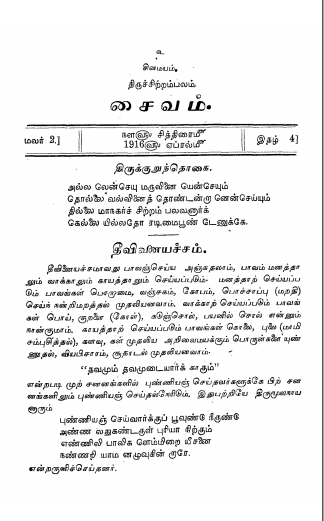 உ
சிவமயம்.
திருச்சிற்றம்பலம்.
சைவம்.
மலர் 2.]
நளஞ சித்திரைமீ
1916ஞ ஏப்ரல்மீ
[இதழ் 4]
திருக்குறுந்தொகை.
அல்ல லென்செயு மருவினை யென்செயும்
தொல்லை வல்வினைத் தொண்டன்ற னென்செய்யும்
தில்லை மாநகர்ச் சிற்றம் பலவனார்க்
கெல்லை யில்லதோ ரடிமைபூண் டேனுக்கே.
தீவினையச்சம்.
தீவினையச்சமாவது பாவஞ்செய்ய அஞ்சுதலாம், பாவம் மனத்தா
லும் வாக்காலும் காயத்தாலும் செய்யப்படும்- மனத்தாற் செய்யப்ப
டும் பாவங்கள் பொறாமை, வஞ்சகம், கோபம், பொச்சாப்பு (மறதி)
செய்ந் நன்றிமறத்தல் முதலியனவாம். வாக்காற் செய்யப்படும் பாவங்
கள் பொய், குறளை (கோள்), கடுஞ்சொல், பயனில் சொல் என்னும்
நான்குமாம். காயத்தாற் செய்யப்படும் பாவங்கள் கொலை, புலை (மாமி
சம்புசித்தல்), களவு, கள் முதலிய அறிவைமயக்கும் பொருள்களை யுண்
ணுதல், வியபிசாரம், சூதாடல் முதலியனவாம்.
“தவமும் தவமுடையார்க் காகும்”
என்றபடி முற் சனனங்களில் புண்ணியஞ் செய்தவர்களுக்கே பிற் சன
னங்களிலும் புண்ணியஞ் செய்தல்கூடும். இதுபற்றியே திருமூலநாய
னாரும்
புண்ணியஞ் செய்வார்க்குப் பூவுண்டு நீருண்டு
அண்ண லதுகண்டருள் புரியா நிற்கும்
எண்ணிலி பாவிக ளெம்மிறை யீசனை
நண்ணறி யாம னழுவுகின் றாரே.
என்றருளிச்செய்தனர்.